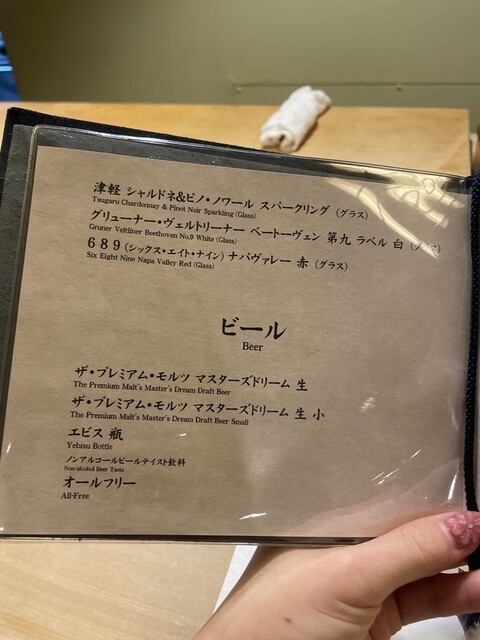 津軽 シャルドネ&ピノ・ノワール スパークリング (グラス)
Tsugaru Chardonnay & Pinot Noir Sparkling (Glass)
グリューナー・ヴェルトリーナー ベートーヴェン 第九 ラベル 白 (グラス)
Gruner Veltliner Beethoven No.9 White (Glass)
689 (シックス・エイト・ナイン) ナパヴァレー 赤 (グラス)
Six Eight Nine Napa Valley Red (Glass)
ビール
Beer
ザ・プレミアム・モルツ マスターズドリーム 生
The Premium Malt's Master's Dream Draft Beer
ザ・プレミアム・モルツ マスターズドリーム 生 小
The Premium Malt's Master's Dream Draft Beer Small
エビス 瓶
Yebisu Bottle
ノンアルコールビールテイスト飲料
Non-alcohol Beer Taste
オールフリー
All-Free